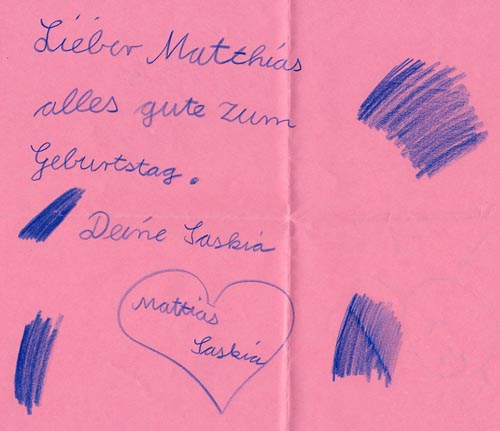 Lieber Matthias
alles gute zum
Geburtstag.
Deine Saskia
Mattias
Saskia